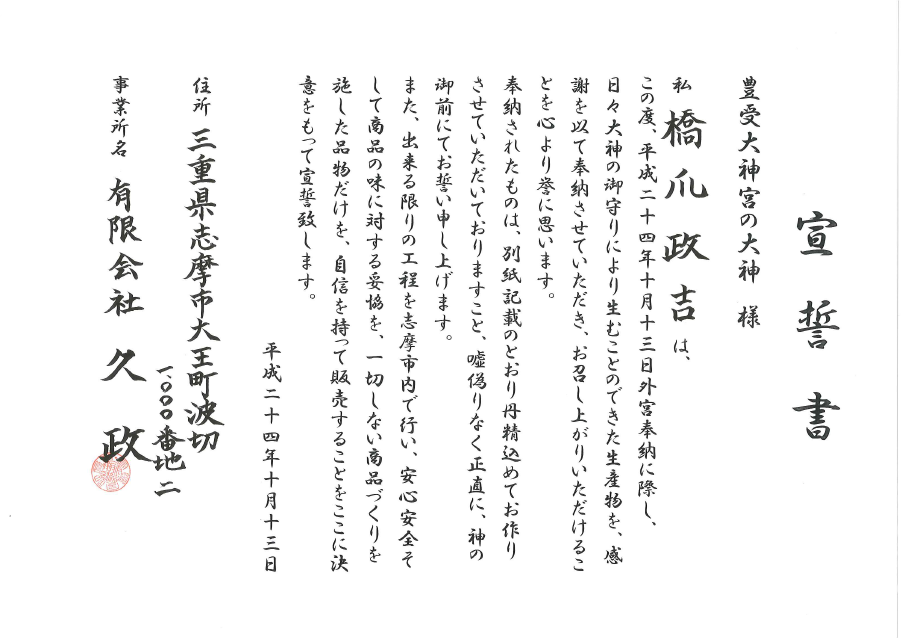 宣誓書
豊受大神宮の大神 様
私 橋爪政吉 は、
この度、平成二十四年十月十三日外宮奉納に際し、
日々大神の御守りにより生むことのできた生産物を、感
謝を以て奉納させていただき、お召し上がりいただけるこ
とを心より誉に思います。
奉納されたものは、別紙記載のとおり丹精込めてお作り
させていただいておりますこと、嘘偽りなく正直に、神の
御前にてお誓い申し上げます。
また、出来る限りの工程を志摩市内で行い、安心安全そ
して商品の味に対する妥協を、一切しない商品づくりを
施した品物だけを、自信を持って販売することをここに決
意をもって宣誓致します。
平成二十四年十月十三日
住所 三重県志摩市大王町波切
一、〇〇〇番地二
事業所名 有限会社 久政